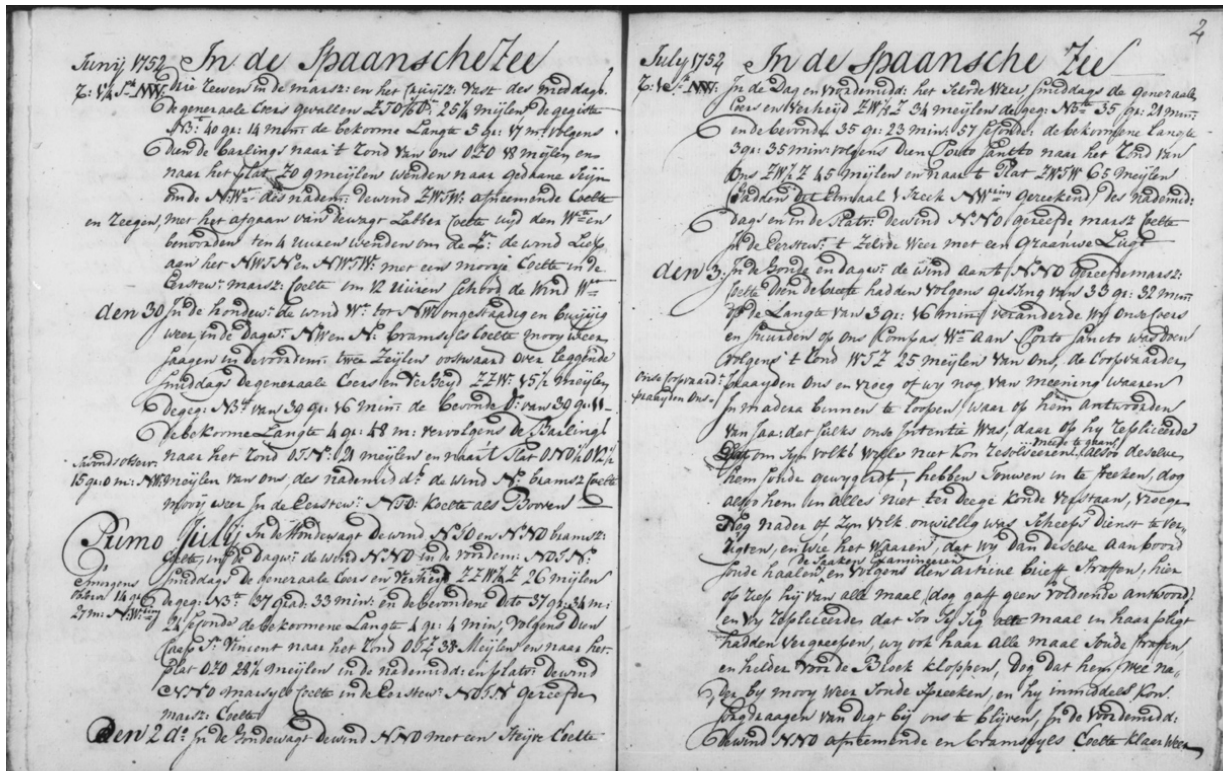 Junij 1752 In de Spaansche Zee
drie Zeewen in de marsz: en het Vast des middags
de generaale Coers gevallen 25¼ meijlen de gegiste
N:Br: 40 gr: 14 min: de bekoome Langte 5 gr: 17 m: volgens
dien de barlings naar 't rond van ons OZO 18 meijlen en
naar het plat ZO 9 meijlen wenden naar gedaane
des nademid: de wind ZWTW: afneemende Coelte
en Zeegen, met het afgaan van de wagt Labber Coelte
ten 4 uuren wenden om de de wind Liep
aan het NWTN: en NWTW: met een mooije Coelte in de
Eerstew: marsz: Coelte om 12 uuren schood de wind W:
den 30 In de hondew: de wind W: tot NW: ongestaadig en buijig
weer in de Dagw: NW en N: bramseijls Coelte mooij weer
saagen in de voordem: twee Zeijlen oostwaard over leggende
smiddags de generaale Coers en Verheijd ZZW: 15½ meijlen
de geg: N:Br: van 39 gr: 16 min: de bevonde d: van 39 gr: 11
de bekoome Langte 4 gr: 48 m: vervolgens de Barlings
naar het rond OTN: 21 meijlen en naar 't Plat
savonds observ:
15 gr: 0 m: NW: meijlen van ons, des nademidd: de wind N: bramsz Coelte
mooij weer In de Eerstew: NTO: Koelte als Booven
Primo Julij In de Hondewagt de wind NTO en NNO bramsz:
Coelte, in de Dagw: de wind NNO in de voordem: NOTN:
smiddags de generaale Coers en Verheijd ZZW¼Z 26 mijlen
Smorgens
observ 14 gr:
37 m: de geg: N:Br: 37 grad: 33 min: en de bevondene Dito 37 gr: 34 m:
21 seconde de bekoomene Langte 4 gr: 4 min, volgens Dien
Caap S: Vincent naar het rond OTZ 38 Meijlen en naar het
plat OZO 28½ meijlen in de nademidd: en platv: de wind
NNO marseijls Coelte in de Eerstew: NOTN gereefde
marsz: Coelte
Den 2 d: In de hondewagt de wind NNO met een Steijve Coelte
2
July 1752 In de Spaansche Zee
In de Dag en Voordemidd: het Zelve Weer smiddags de Generaale
Coers en Verheijd ZW½Z 34 meijlen de geg: N:Br: 35 gr: 21 min:
en de bevonde 35 gr: 23 min: 57 seconde: de bekoomene Langte
3 gr: 35 min: volgens Dien Porto Santto naar het rond van
ons ZW½Z 45 Mijlen en naar 't Plat ZWTW 65 Meijlen
(hadden dit Etmaal 1 streek NW:ring gereekend) des nademid:
dags en in de Platv: de wind NNO, gereefde marsz Coelte
In de Eerstew: 't Zelve Weer met een graauwe Lugt
den 3: In de honde en dagw: de wind aan 't NNO gereefde marsz:
Coelte Dien de hadden Volgens gissing van 33 gr: 32 min:
op de Langte van 3 gr: 16 min: veranderde wij onse Coers
en stuurden op ons Kompas W: aan Porto Sancto was doen
volgens 't rond WTZ 25 meijlen van Ons, de Coopvaarder
Onse Coopvaard:
praayden ons
praayden Ons en vroeg of wij nog van meening waaren
In madera binnen te loopen, waar op hem antwoorden
van Jaa: dat sulks onse Intentie was, daar op hy repliceerde
Dat om sijn volks wille niet kon resolveeren mede te gaan, alsoo deselve
hem sonde gewijgerdt, hebben Touwen in te steeken, dog
alsoo hem in Alles niet ter deege konde verstaan, vroegen
Nog nader of Zijn volk onwillig was Scheeps Dienst te ver
rigten, en wie het waaren, dat wij dan deselve aan boord
soude haalen, de Saaken Examineeren en volgens den articul brieff straffen, hier
op riep hij van alle maal (dog gaff geen voldoende antwoord)
en wy repliceerden dat soo se sig alle maal in haar pligt
hadden vergreepen, wij ook haar alle maal soude straffen,
en helder voor de Bloek kloppen, Dog dat hem wee na
der by mooy weer soude spreeken, en hy inmiddels kon
sorgdraagen van digt bij ons te blijven, In de voordemidd:
de wind NNO afneemende en bramseyls Coelte klaar weer